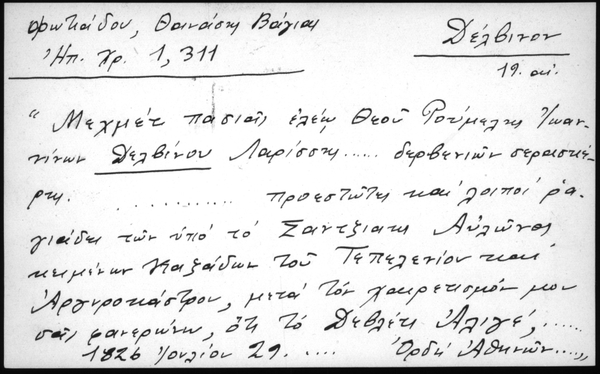 Φωτιάδου, Θανάσης Βάγιας
Ἠπ. Χρ. 1, 311
Δέλβινον
19. αἰ.
"Μεχμέτ πασιᾶς ἐλέῳ Θεοῦ Ρούμελης Ἰωαν-
νίνων Δελβίνου Λαρίσσης..... δερβενιῶν σερασκέ-
ρης. .......... προεστῶτες καί λοιποί ρα-
γιάδες τῶν ὑπό τό Σαντζιάκι Αὐλῶνος
κειμένων Καζάδων τοῦ Τεπελενίου καί
Ἀργυροκάστρου, μετά τόν χαιρετισμόν μου
σᾶς φανερώνω, ὅτι τό Δεβλέτι Ἀλιγέ, ......
1826 Ἰουλίου 29. .... Ὀρδί Ἀθηνῶν....,,